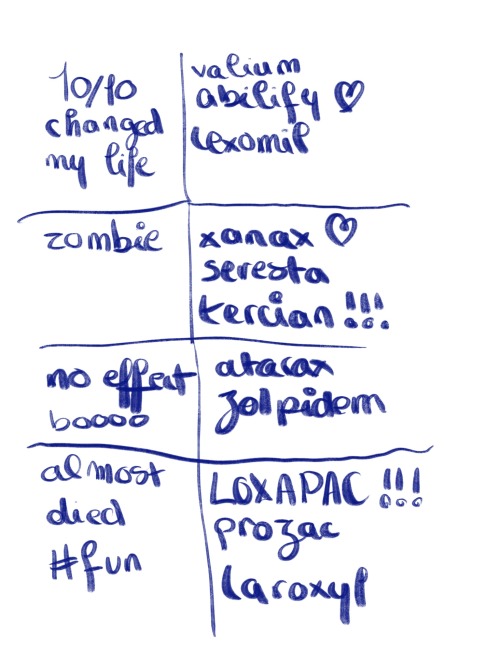 10/10
changed
my life
valium
abilify ♡
lexomil
zombie
xanax ♡
seresta
tercian !!!
no effect
boooo
atarax
zolpidem
almost
died
#fun
LOXAPAC !!!
prozac
laroxyl